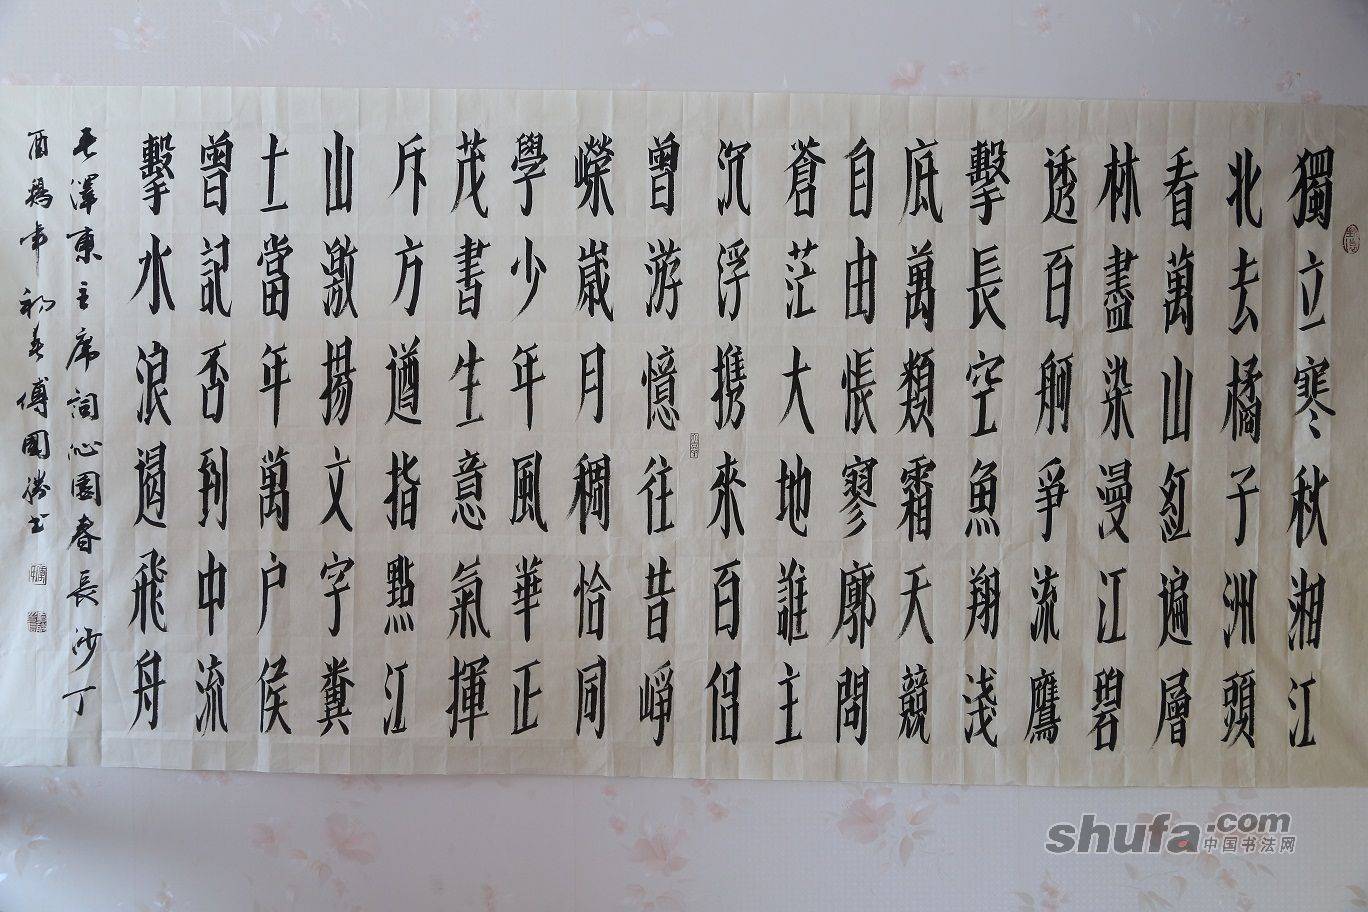 獨立寒秋湘江
北去橘子洲頭
看萬山紅遍層
林盡染漫江碧
透百舸爭流鷹
擊長空魚翔淺
底萬類霜天競
自由悵寥廓問
蒼茫大地誰主
沉浮攜來百侶
曾游憶往昔崢
嶸歲月稠恰同
學少年風華正
茂書生意氣揮
斥方遒指點江
山激揚文字糞
土當年萬户侯
曾記否到中流
擊水浪遏飛舟
毛澤東主席詞沁園春長沙丁
酉鷄年初春傅國勝書
shufa.com
中国书法网